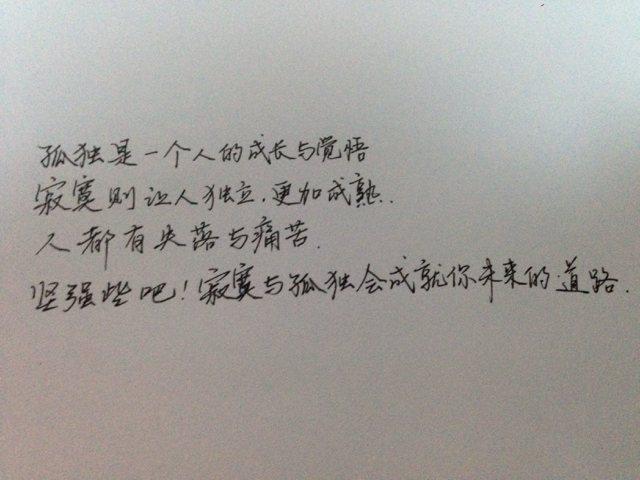 孤独是一个人的成长与觉悟
寂寞则让人独立.更加成熟.
人都有失落与痛苦.
坚强些吧!寂寞与孤独会成就你未来的道路.